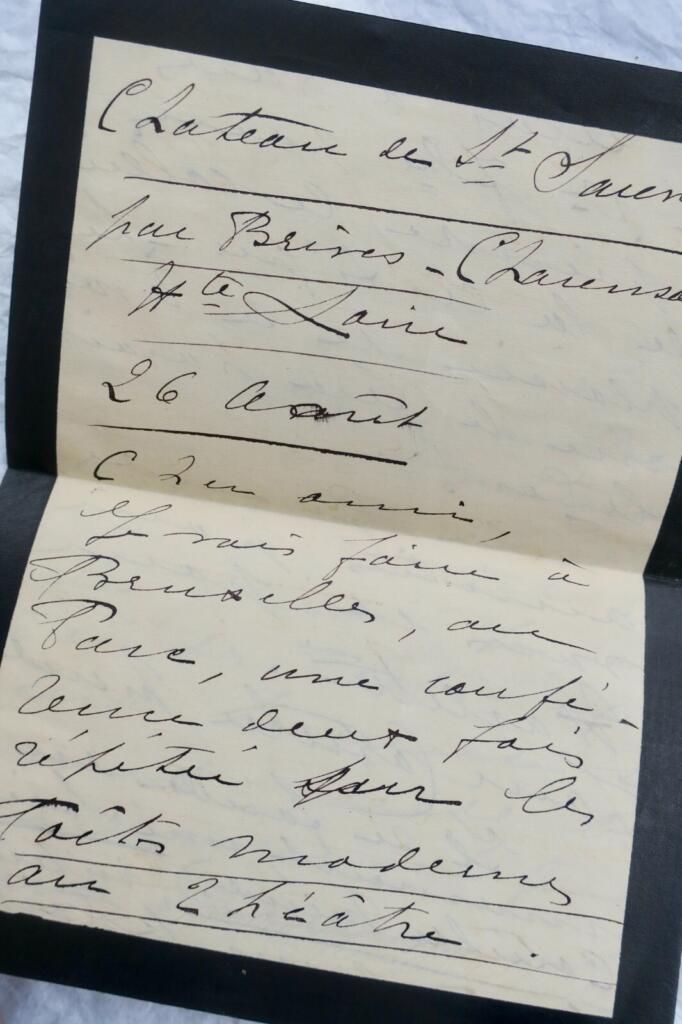 Chateau de St
par Brives-Charensa
Hte Loire
26 Août
Cher ami,
Je vais faire à
Bruxelles, au
Parc, une confé-
rence deux fois
répétée sur les
modernes
au Théâtre.